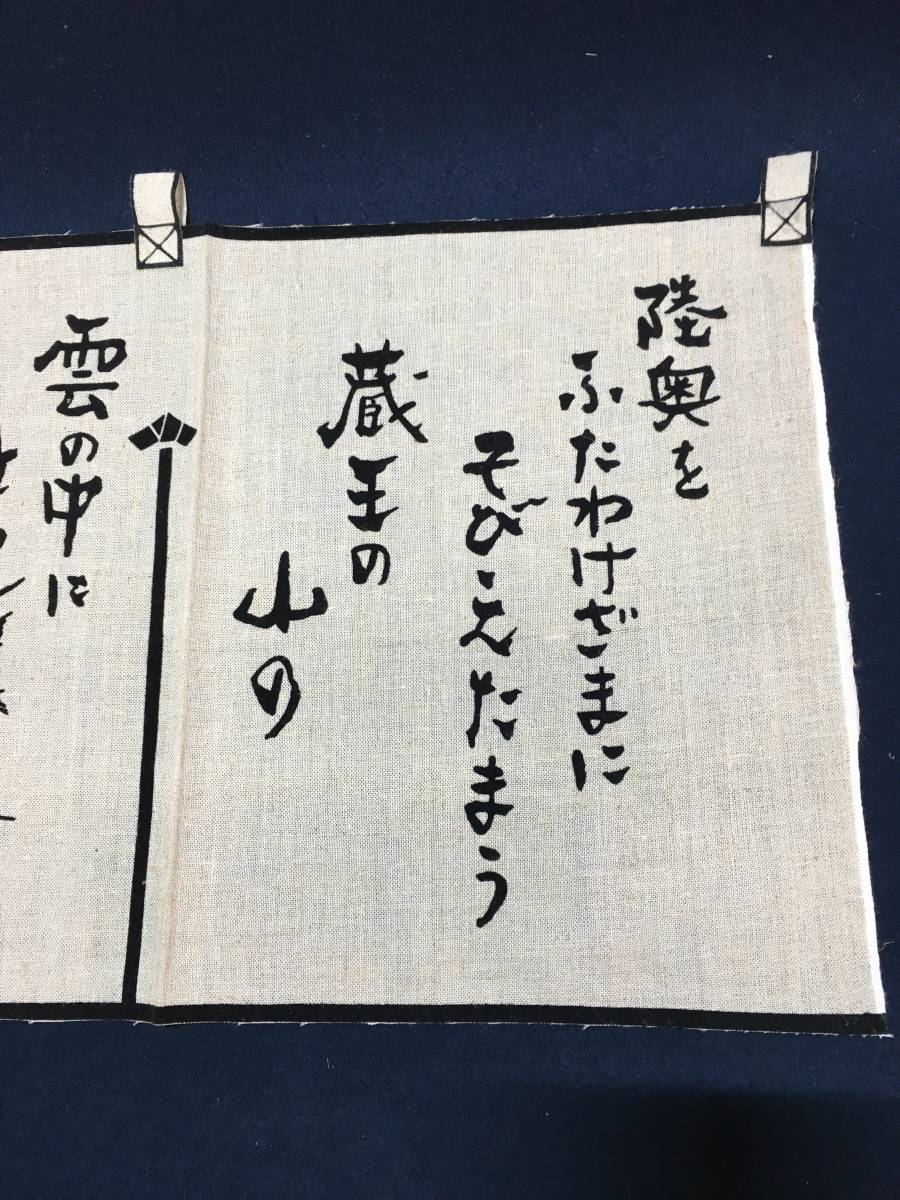 陸奥を
ふたわけざまに
そびえたまう
蔵王の
山の
雲の中に